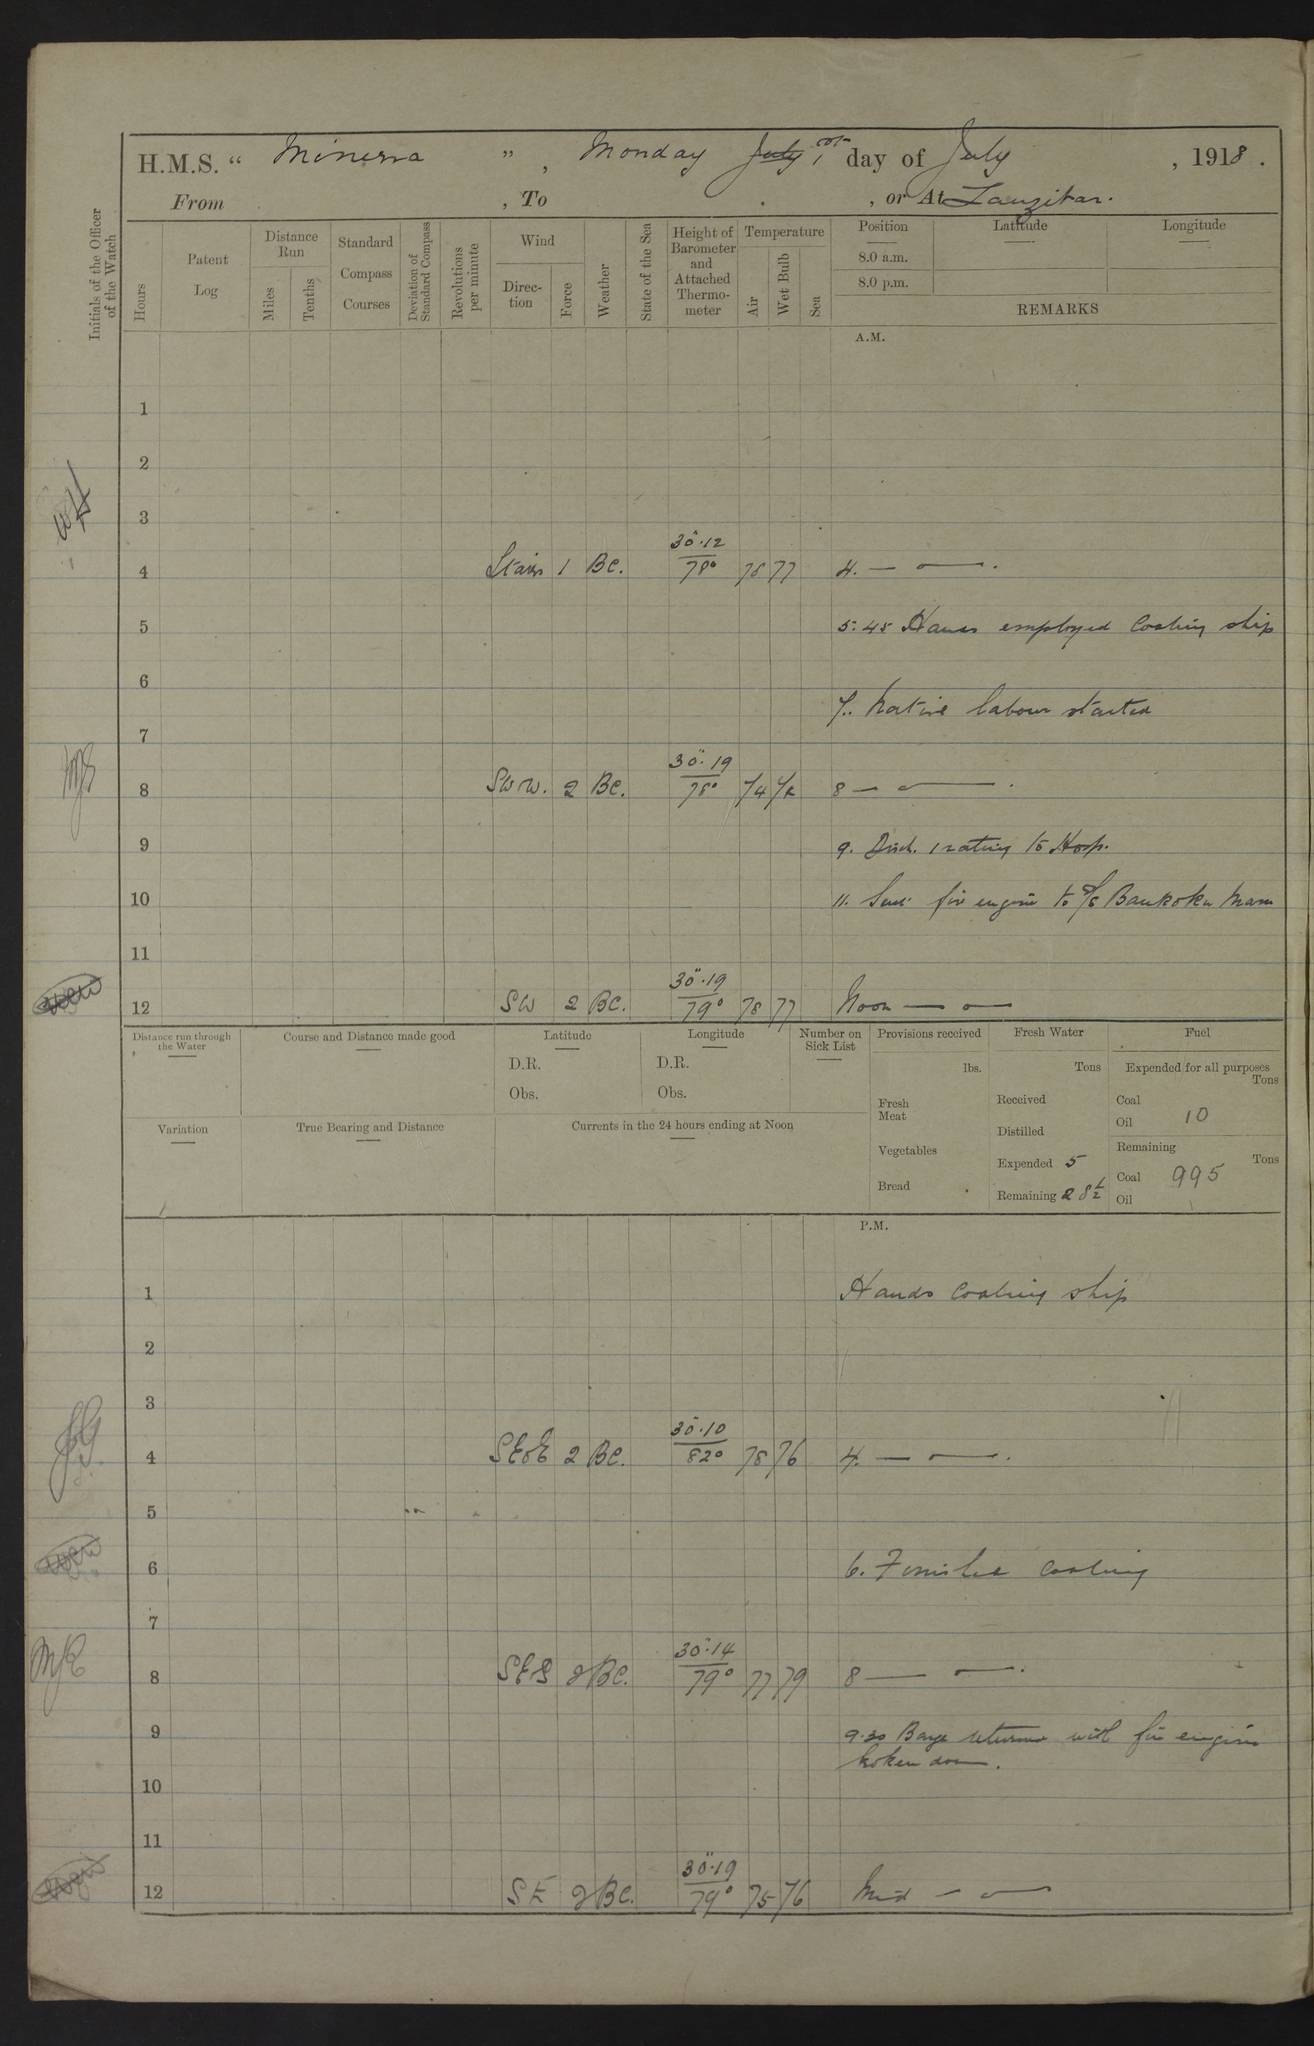 H.M.S. “ Minerva ” , Monday July 1st day of July , 1918 .
From , To , or At Zanzibar.
Initials of the Officer of the Watch
Hours
Patent Log
Distance Run
Miles
Tenths
Standard Compass Courses
Deviation of Standard Compass
Revolutions per minute
Wind
Direc-tion
Force
Weather
State of the Sea
Height of Barometer and Attached Thermo-meter
Temperature
Air
Wet Bulb
Sea
Position Latitude Longitude
8.0 a.m.
8.0 p.m.
REMARKS
A.M.
1
2
3
4 1 BC. 30".12 78° 78 77 4. — o —.
5 5.45 Hands employed Coaling ship
6
7.. Native labour started
7
8 SWW. 2 BC. 30".19 78° 74 8 — o —.
9 9. Disch. 1 rating to Hosp.
10 11. Sent fire engine to S/S Maru
11
12 SW 2 BC. 30".19 79° 78 77 Noon — o —
Distance run through the Water
Course and Distance made good
Latitude
D.R.
Obs.
Longitude
D.R.
Obs.
Number on Sick List
Provisions received
lbs.
Fresh Meat
Vegetables
Bread
Fresh Water
Tons
Received
Distilled
Expended 5
Remaining 28½
Fuel
Expended for all purposes
Tons
Coal
Oil 10
Remaining
Tons
Coal 995
Oil
Variation
True Bearing and Distance
Currents in the 24 hours ending at Noon
P.M.
1 Hands Coaling ship
2
3
4 SEbE 2 BC. 30".10 82° 78 76 4. — o —.
5
6 6. Finished Coaling
7
8 2 BC. 30".14 79° 77 79 8 — o —.
9 9.30 Barge returned with fire engine
broken down.
10
11
12 SE 2 BC. 30".19 79° 75 76 Mid — o —